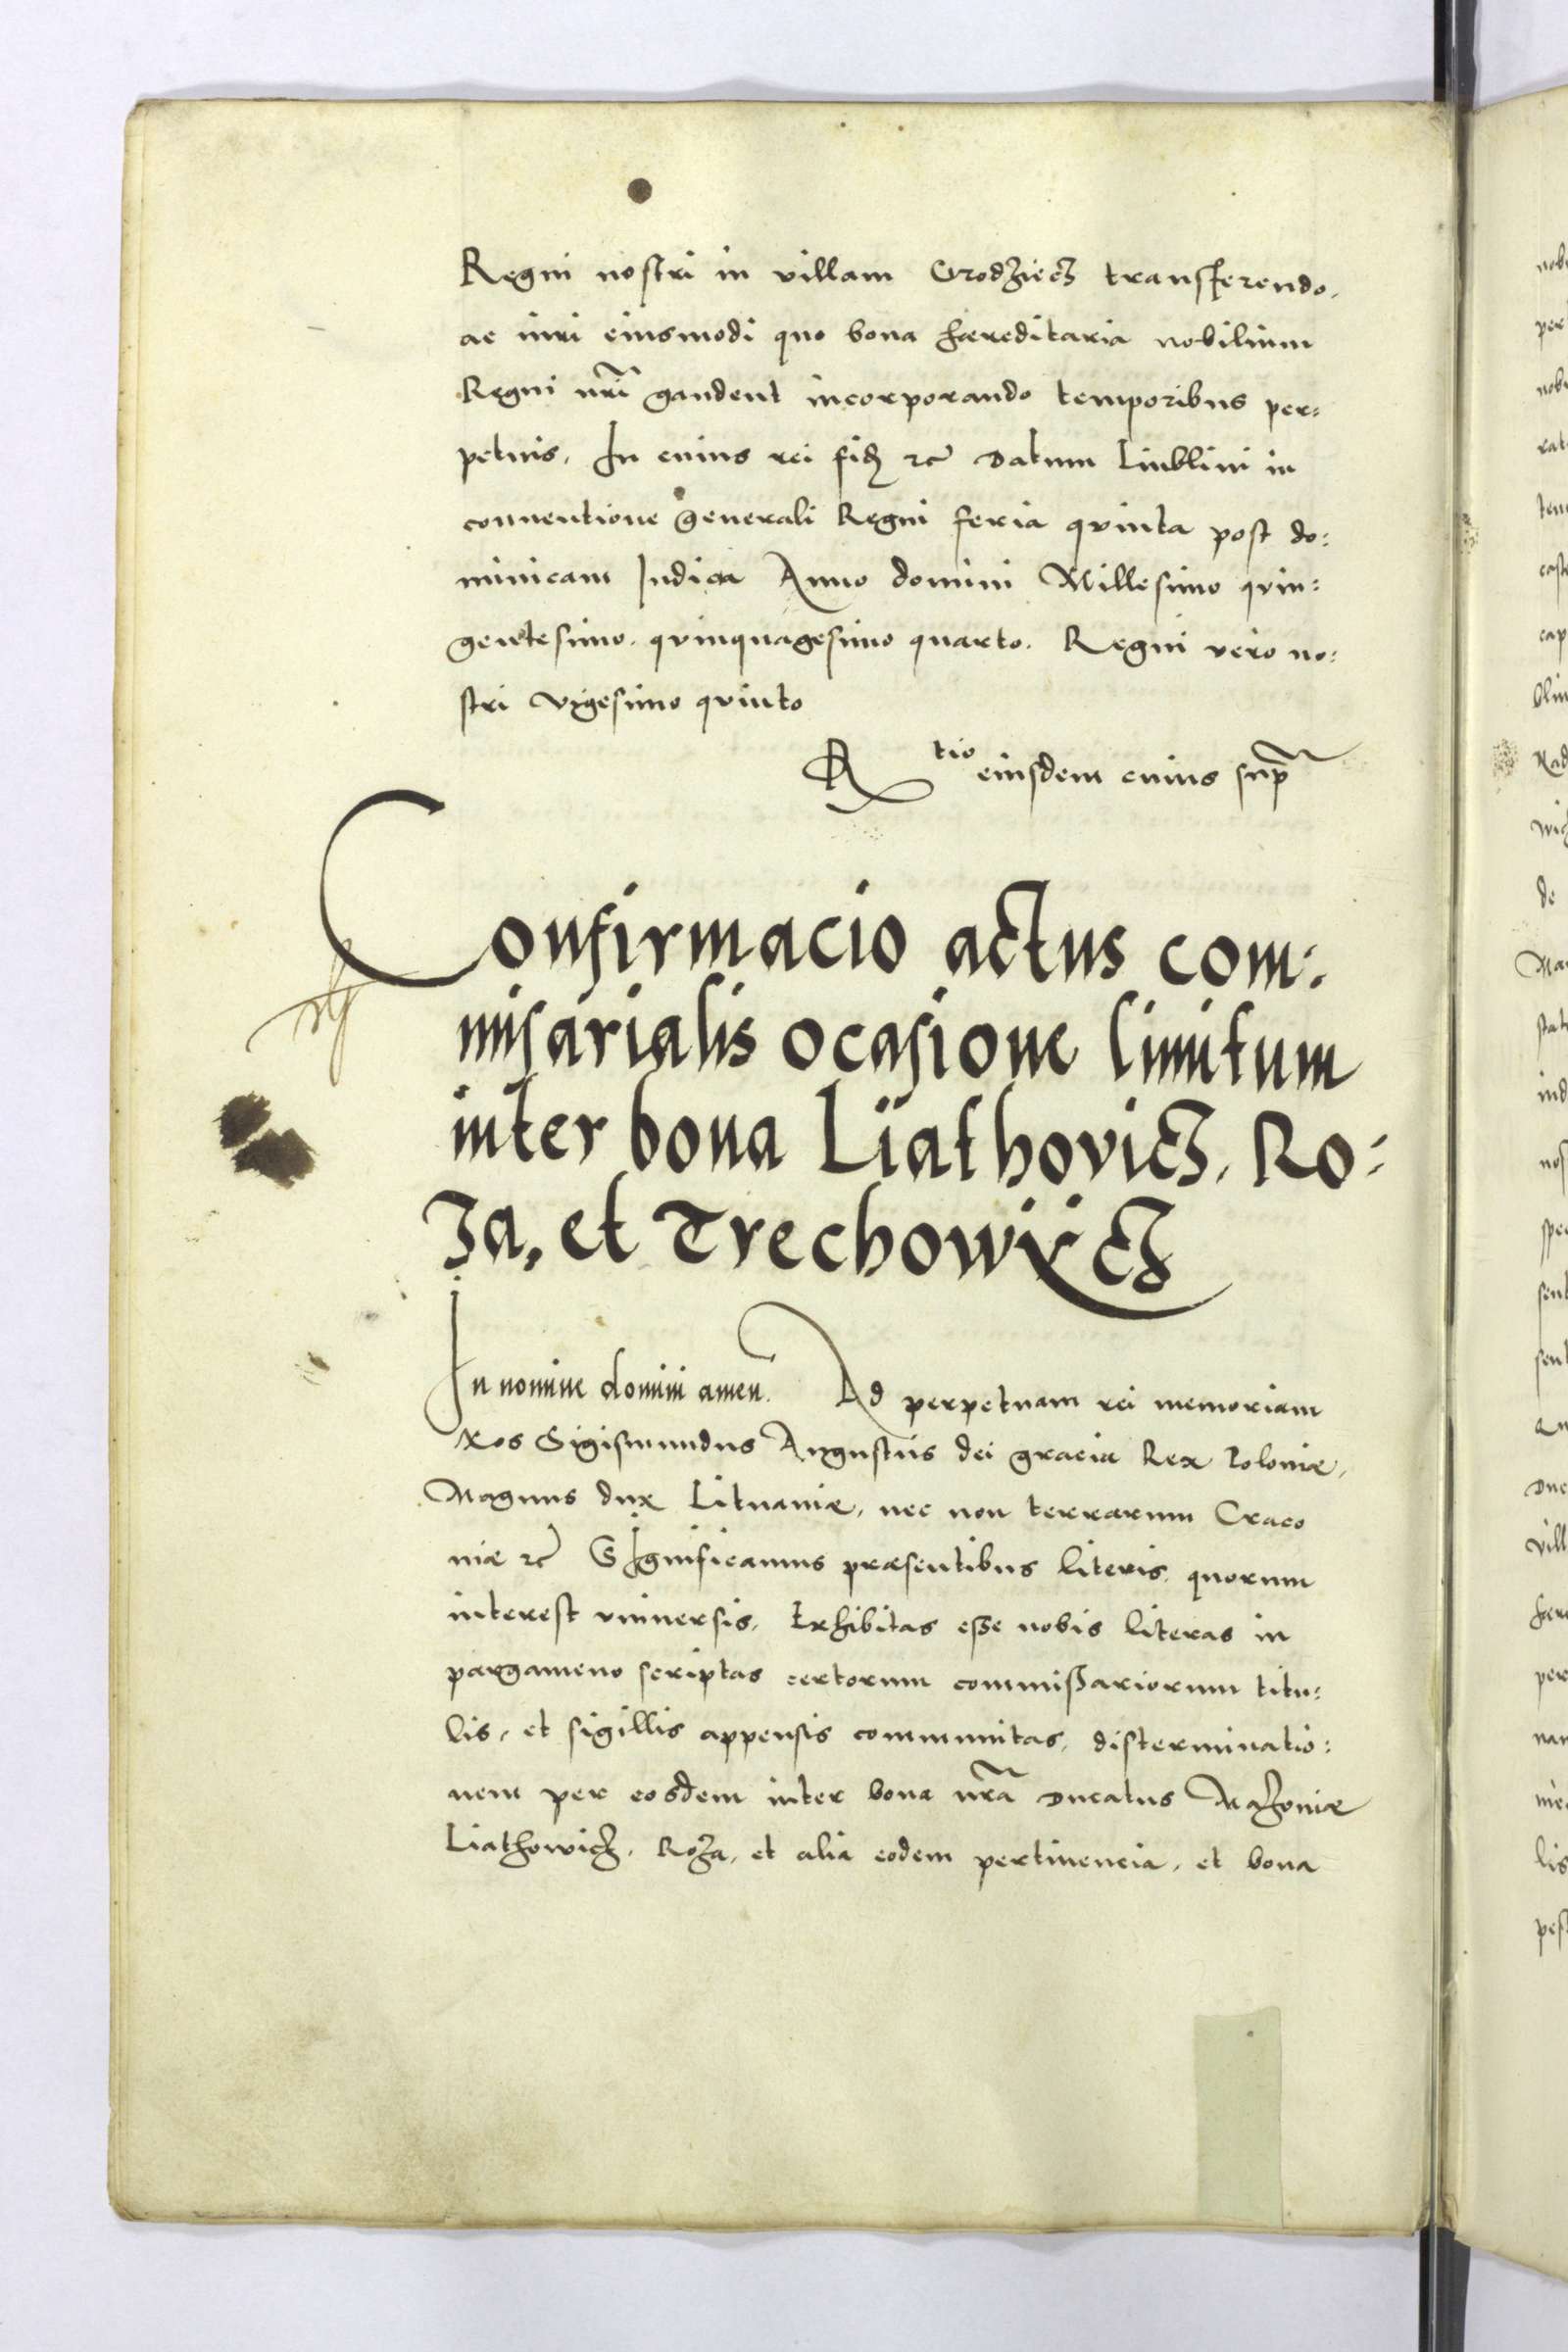 Regni nostri in villam Grodziecz transferendo,
ac iuri eiusmodi quo bona hæreditaria nobilium
Regni nr̃i gaudent incorporando temporibus per:
petuis. In cuius rei fidẽ ꝛc̃ Datum Liublini in
conuentione generali Regni feria quinta post do:
minicam Iudica Anno domini Millesimo quin:
gentesimo. quinquagesimo quarto. Regni vero no:
stri vigesimo quinto
R tio eiusdem cuius sup̃
Confirmacio actus com:
misarialis ocasione limitum
inter bona Liathovicz, Ro:
za, et Trechowycz
In nomine domini amen. Ad perpetuam rei memoriam
Nos Sigismundus Augustus dei gracia Rex Poloniæ,
Magnus dux Lituaniæ, nec non terrarum Craco
niæ ꝛc̃ Significamus præsentibus literis, quorum
interest vniuersis, Exhibitas esse nobis literas in
pargameno scriptas certorum commissariorum titu:
lis, et sigillis appensis communitas, disterminatio:
nem per eosdem inter bona nr̃a Ducatus Mazoniæ
Liathowicz, Roza, et alia eodem pertinencia, et bona